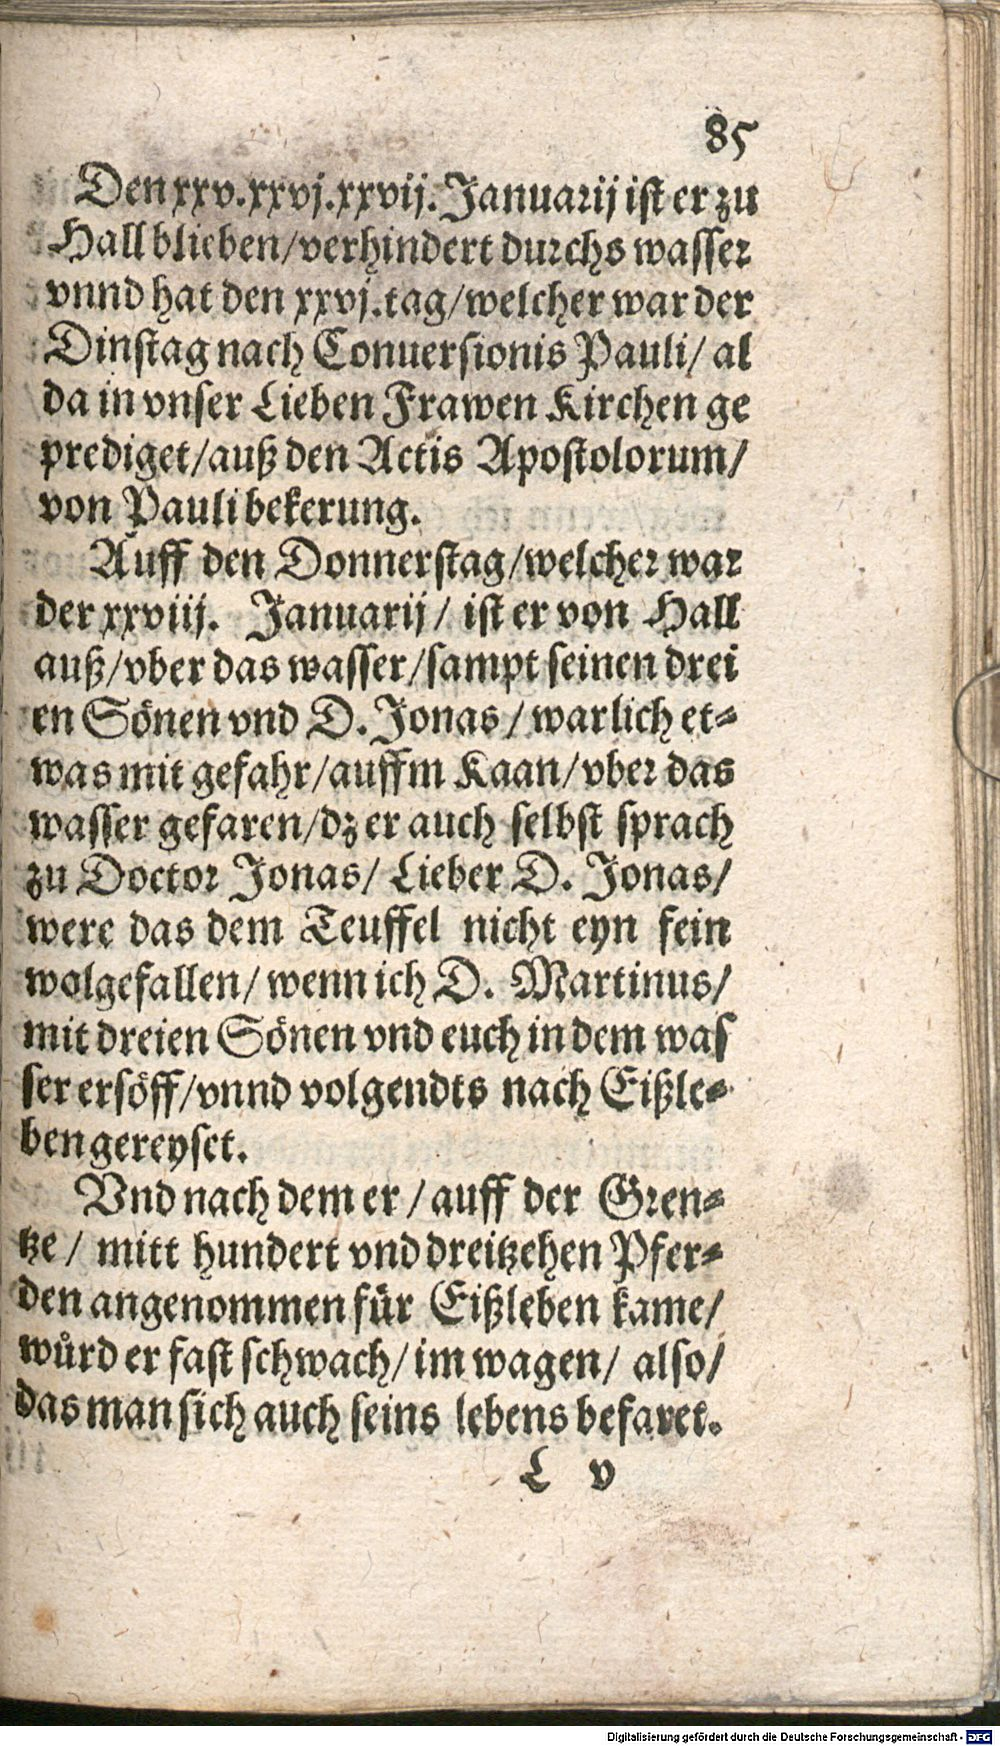 85
Den xxv.xxvj.xxvij. Januarij ist er zu
Hall blieben/verhindert durchs wasser
vnnd hat den xxvj.tag/welcher war der
Dinstag nach Conuersionis Pauli/ al
da in vnser Lieben Frawen Kirchen ge
prediget/auß den Actis Apostolorum/
von Pauli bekerung.
Auff den Donnerstag/welcher war
der xxviij. Januarij/ ist er von Hall
auß/vber das wasser/sampt seinen drei
en Sönen vnd D. Jonas/ warlich et⸗
was mit gefahr/auffm Kaan/vber das
wasser gefaren/dz er auch selbst sprach
zu Doctor Jonas/ Lieber D. Jonas/
were das dem Teuffel nicht eyn fein
wolgefallen/ wenn ich D. Martinus/
mit dreien Sönen vnd euch in dem was
ser ersöff/vnnd volgendts nach Eißle⸗
ben gereyset.
Vnd nach dem er/ auff der Gren⸗
tze/ mitt hundert vnd dreitzehen Pfer⸗
den angenommen für Eißleben kame/
wůrd er fast schwach/ im wagen/ also/
das man sich auch seins lebens befaret.
L v
Digitalisierung gefördert durch die Deutsche Forschungsgemeinschaft - DFG